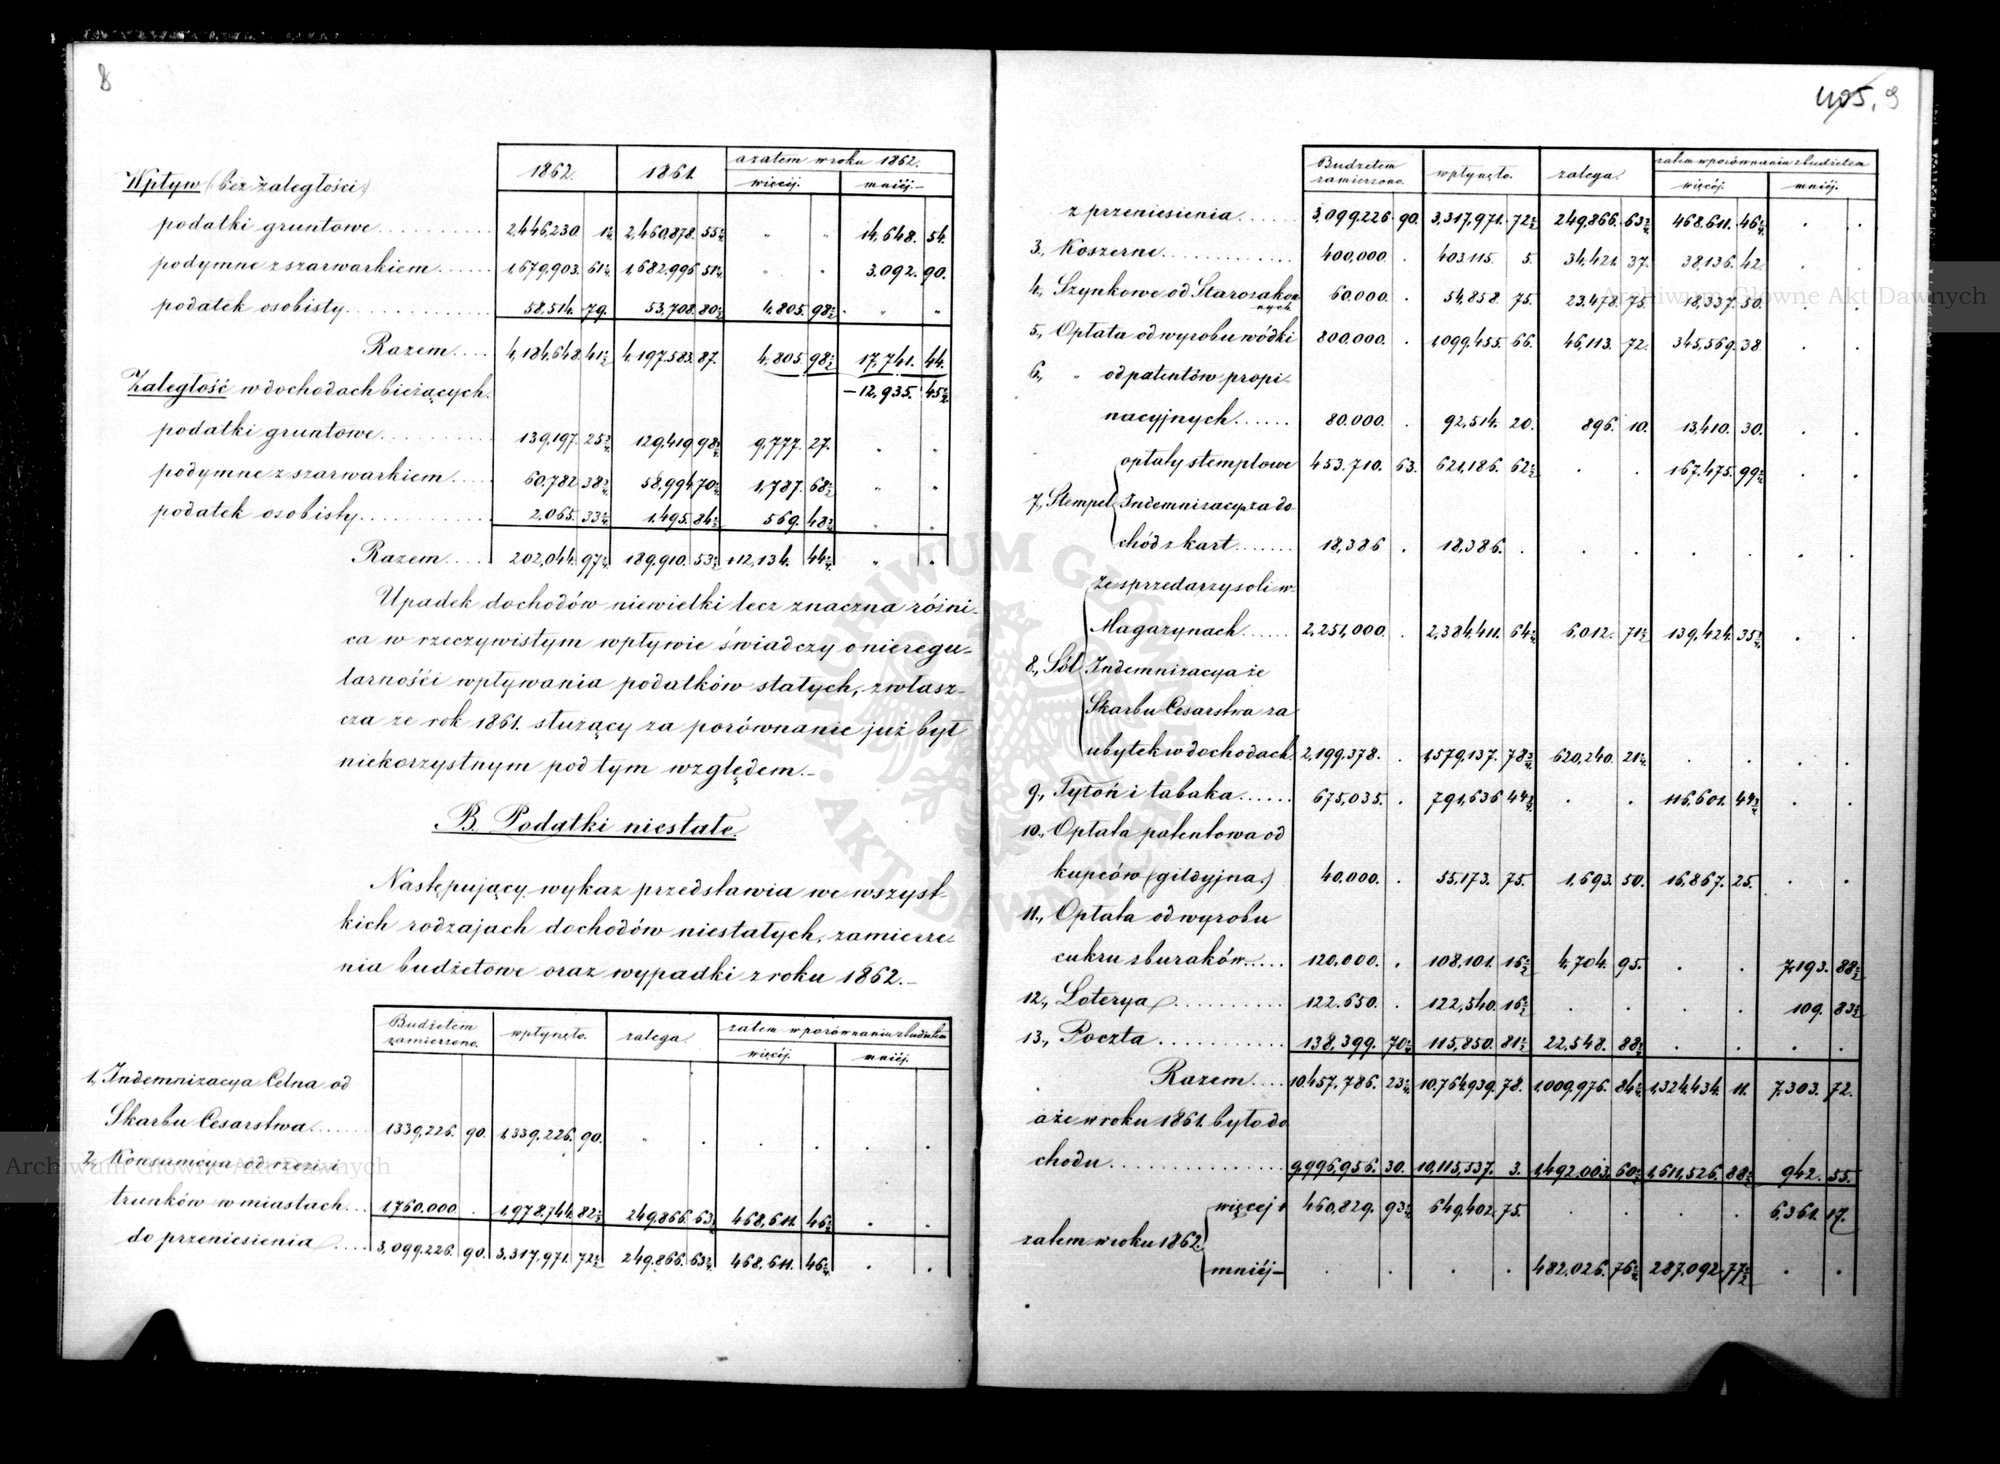 8
1862. 1861. azatem w roku 1862.
Wpływ (bez zaległości) więcéj. mniéj.
podatki gruntowe 2,446,230. 1¼ 2,460,878. 55¼ " " 14,648. 54.
podymne z szarwarkiem 1,679,903. 61¼ 1,682,996 51¼ " " 3,092. 90.
podatek osobisty 58,514. 79. 53,708. 80½ 4,805. 98½ " "
Razem 4,184,648. 41½ 4,197,583. 87. 4,805 98½ 17,741. 44.
Zaległość w dochodach bieżących. —12,935. 45½
podatki gruntowe 139,197. 25¾ 129,419 98¾ 9,777. 27. " "
podymne z szarwarkiem 60,782 38¾ 58,994 70¼ 1,787. 68½ " "
podatek osobisty 2,065. 33¼ 1,495. 84½ 569. 48¾ " "
Razem 202,044. 97¾ 189,910. 53½ +12,134. 44¼ " "
Upadek dochodów niewielki lecz znaczna różni-
ca w rzeczywistym wpływie świadczy o nieregu-
larnośći wpływania podatków stałych, zwłasz-
cza ze rok 1861. służący za porównanie już był
niekorzystnym pod tym względem.—
B. Podatki niestałe.
Następujący wykaz przedstawia we wszyst-
kich rodzajach dochodów niestałych, zamierze-
nia budżetowe oraz wypadki z roku 1862.—
Budżetem zamierzono. wpłynęło. zalega. zatem w porównaniu z budżetem
więcéj. mniéj.
1., Indemnizacya Celna od
Skarbu Cesarstwa 1339,226. 90. 1,339,226. 90. " . . . . .
2., Konsumcya od rzezi i
trunków w miastach 1,760,000 . 1,978,744. 82½ 249,866. 63¾ 468,611. 46¼ . .
do przeniesienia 3,099,226. 90. 3,317,971. 72½ 249,866. 63¾ 468,611. 46¼ . .
495, 9
Budżetem zamierzono. wpłynęło. zalega. zatem w porównaniu z budżetem
więcéj. mniéj.
z przeniesienia 3,099,226 90. 3,317,971. 72½ 249,866. 63¾ 468,611. 46¼ . .
3., Koszerne 400,000. . 403,115. 5. 34,421. 37. 38,136. 42 . .
4., Szynkowe od Starozakon
nych 60,000. . 54,858. 75. 23,478. 75. 18,337. 50. . .
5., Opłata od wyrobu wódki 800,000. . 1,099,455. 66. 46,113. 72. 345,569. 38 . .
6., " od patentów propi-
nacyjnych 80,000. . 92,514. 20. 896. 10. 13,410. 30. . .
opłaty stemplowe 453,710. 63. 621,186. 62½ . . 167,475. 99½ . .
7., Stempel Indemnizacya za do
chód z kart 18,386 . 18,386. . . . . . . .
ze sprzedarzy soli w
Magazynach 2,251,000. . 2,384,411. 64¼ 6,012. 71½ 139,424. 35¾ . .
8., Sól Indemnizacya ze
Skarbu Cesarstwa za
ubytek w dochodach 2,199,378. . 1,579,137. 78¾ 620,240. 21¼ . . . .
9., Tytoń i tabaka 675,035. . 791,636 44¾ . . 116,601. 44¾ . .
10., Opłata patentowa od
kupców (gildyjna.) 40,000. . 55,173. 75. 1,693. 50. 16,867. 25. . .
11., Opłata od wyrobu
cukru z buraków 120,000. . 108,101. 16½ 4,704. 95. . . 7,193. 88½
12., Loterya 122,650. . 122,540. 16½ . . . . 109. 83½
13., Poczta 138,399. 70¼ 115,850. 81½ 22,548. 88¾ . . . .
Razem 10,457,786. 23¼ 10,764,939. 78. 1,009,976. 84¼ 1,324,434. 11. 7,303. 72.
a że w roku 1861. było do
chodu 9,996,956. 30. 10,115,537. 3. 1,492,003. 60½ 1,611,526. 88½ 942. 55.
więcej+ 460,829. 93¼ 649,402. 75. . . . . 6,361. 17.
zatem w roku 1862
mniéj— . . . . 482,026. 76¼ 287,092. 77½ . .
Archiwum Główne Akt Dawnych
Archiwum Główne Akt Dawnych
ARCHIWUM GŁÓWNE AKT DAWNYCH